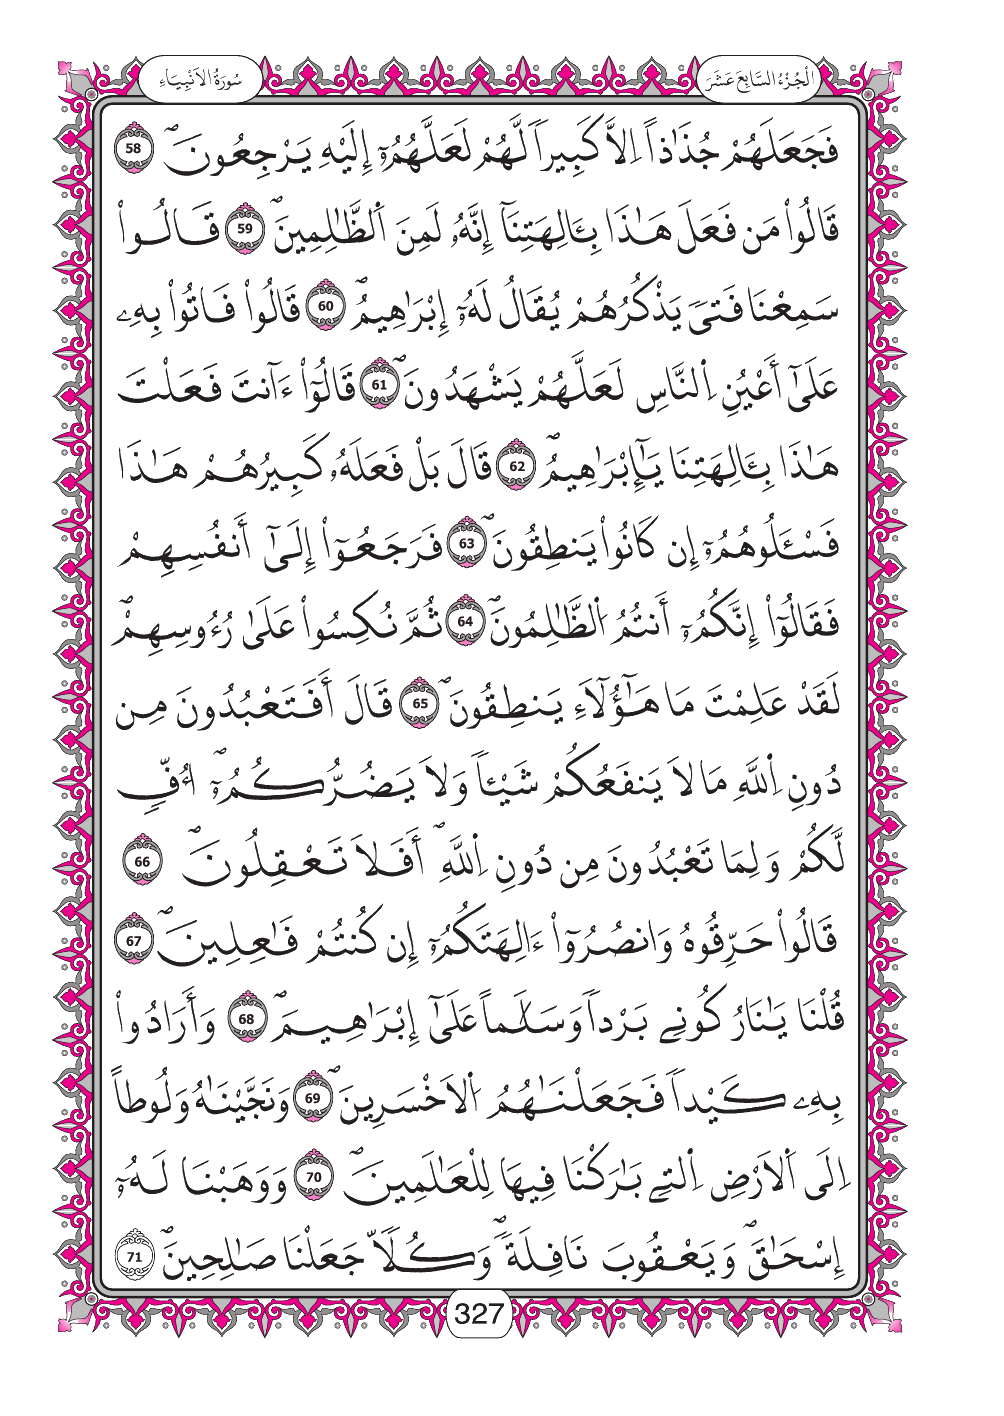 سُورَةُ الْأَنْبِيَاءِ
الْجُزْءُ السَّابِعَ عَشَرَ
فَجَعَلَهُمْ جُذَٰذاً اِلَّا كَبِيراٗ لَّهُمْ لَعَلَّهُمُۥٓ إِلَيْهِ يَرْجِعُونَۖ 58
قَالُواْ مَن فَعَلَ هَـٰذَا بِـَٔالِهَتِنَآ إِنَّهُۥ لَمِنَ اَ۬لظَّـٰلِمِينَۖ 59 قَالُواْ
سَمِعْنَا فَتىٗ يَذْكُرُهُمْ يُقَالُ لَهُۥٓ إِبْرَٰهِيمُۖ 60 قَالُواْ فَاتُواْ بِهِۦ
عَلَىٰٓ أَعْيُنِ اِ۬لنَّاسِ لَعَلَّهُمْ يَشْهَدُونَۖ 61 قَالُوٓاْ ءَآنتَ فَعَلْتَ
هَـٰذَا بِـَٔالِهَتِنَا يَـٰٓإِبْرَٰهِيمُۖ 62 قَالَ بَلْ فَعَلَهُۥ كَبِيرُهُمْ هَـٰذَا
فَسْـَٔلُوهُمُۥٓ إِن كَانُواْ يَنطِقُونَۖ 63 فَرَجَعُوٓاْ إِلَىٰٓ أَنفُسِهِمْ
فَقَالُوٓاْ إِنَّكُمُۥٓ أَنتُمُ اُ۬لظَّـٰلِمُونَۖ 64 ثُمَّ نُكِسُواْ عَلَىٰ رُءُوسِهِمْۖ
لَقَدْ عَلِمْتَ مَا هَـٰٓؤُلَآءِ يَنطِقُونَۖ 65 قَالَ أَفَتَعْبُدُونَ مِن
دُونِ اِ۬للَّهِ مَا لَا يَنفَعُكُمْ شَيْـٔاٗ وَلَا يَضُرُّكُمُۥٓۖ أُفّٖ
لَّكُمْ وَلِمَا تَعْبُدُونَ مِن دُونِ اِ۬للَّهِۖ أَفَلَا تَعْقِلُونَۖ 66
قَالُواْ حَرِّقُوهُ وَانصُرُوٓاْ ءَالِهَتَكُمُۥٓ إِن كُنتُمْ فَـٰعِلِينَۖ 67
قُلْنَا يَـٰنَارُ كُونِے بَرْداٗ وَسَلَـٰماً عَلَىٰٓ إِبْرَٰهِيمَۖ 68 وَأَرَادُواْ
بِهِۦ كَيْداٗ فَجَعَلْنَـٰهُمُ اُ۬لَاخْسَرِينَۖ 69 وَنَجَّيْنَـٰهُ وَلُوطاً
اِلَى اَ۬لَارْضِ اِ۬لتِے بَـٰرَكْنَا فِيهَا لِلْعَـٰلَمِينَۖ 70 وَوَهَبْنَا لَهُۥٓ
إِسْحَـٰقَۖ وَيَعْقُوبَ نَافِلَةٗۖ وَكُلّاٗ جَعَلْنَا صَـٰلِحِينَۖ 71
327